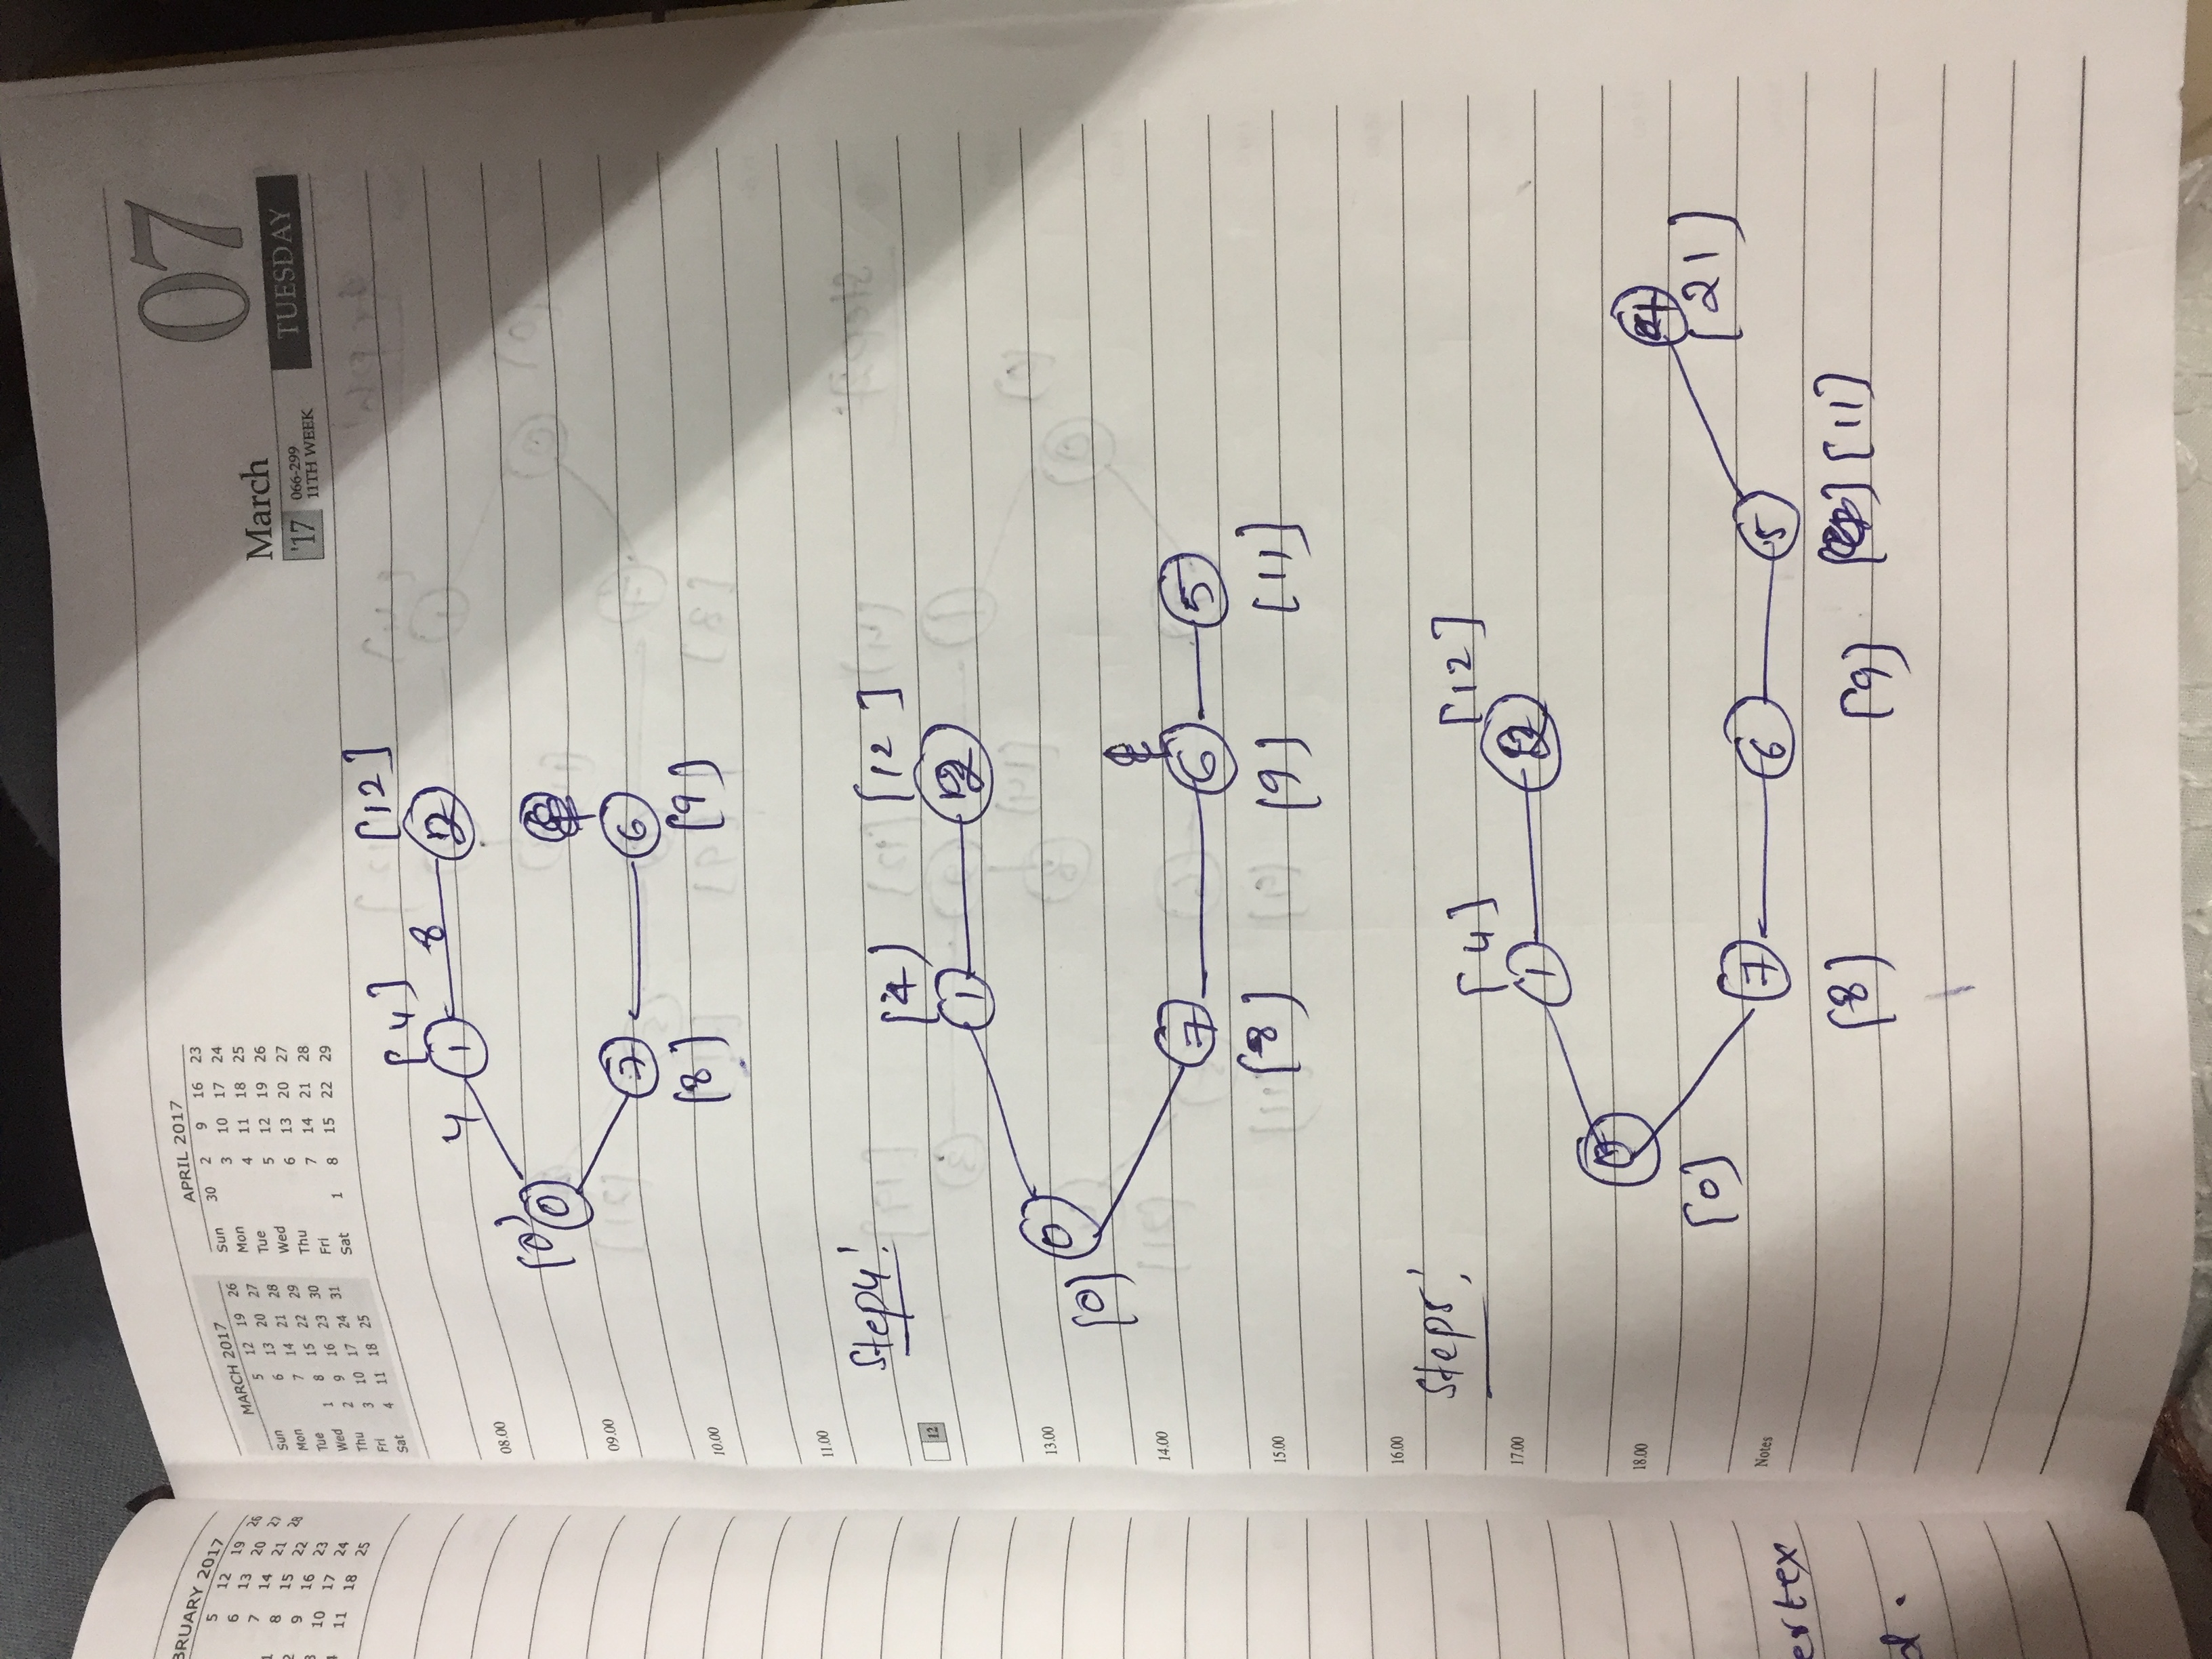 BRUARY 2017
5 12 19 26
6 13 20 27
7 14 21 28
1 8 15 22
2 9 16 23
3 10 17 24
4 11 18 25
MARCH 2017
Sun 5 12 19 26
Mon 6 13 20 27
Tue 7 14 21 28
Wed 1 8 15 22 29
Thu 2 9 16 23 30
Fri 3 10 17 24 31
Sat 4 11 18 25
APRIL 2017
Sun 30 2 9 16 23
Mon 3 10 17 24
Tue 4 11 18 25
Wed 5 12 19 26
Thu 6 13 20 27
Fri 7 14 21 28
Sat 1 8 15 22 29
07
March
'17 066-299
11TH WEEK
TUESDAY
[4] [12]
4 1 8 2
08.00
[0] 0
09.00
7 6
[8] [9]
10.00
11.00
Step4:
[4] [12]
12
1 2
13.00
0
[0]
14.00
7 6 5
[8] [9] [11]
15.00
16.00
Step5:
[4] [12]
17.00
1 2
0
18.00
4
[0] [21]
Notes
7 6 5
[8] [9] [11]
ertex
d.